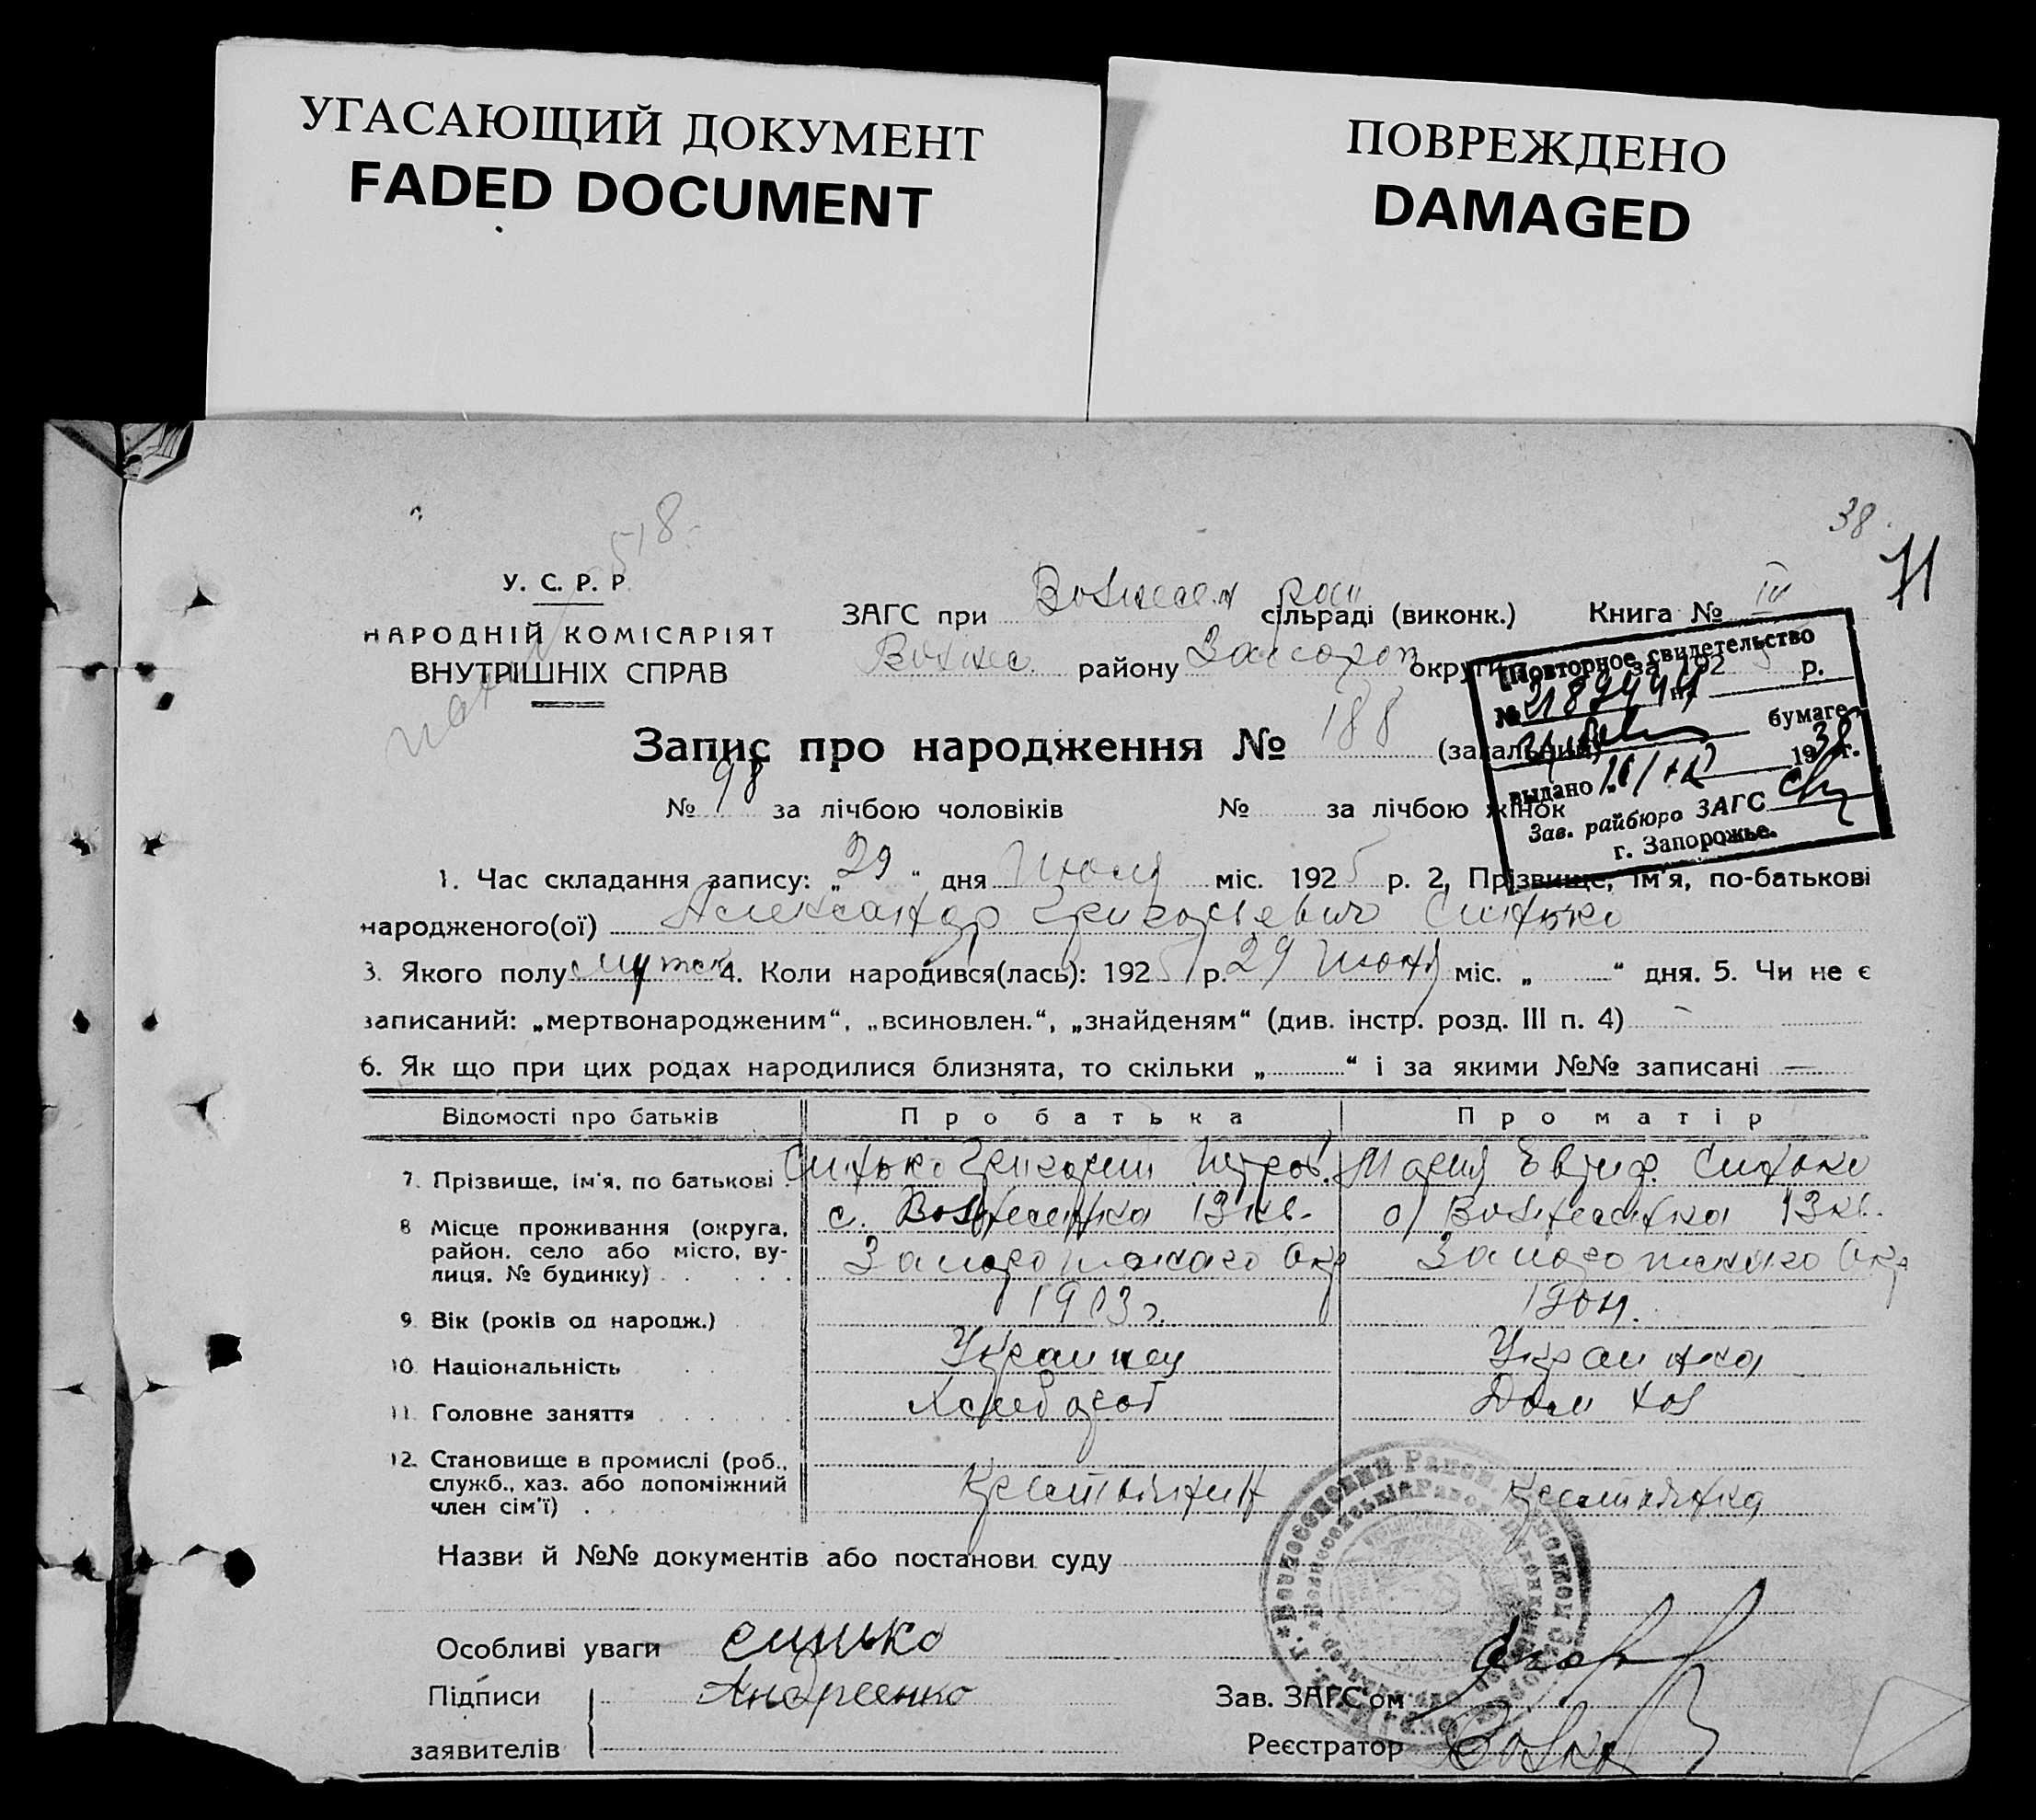 УГАСАЮЩИЙ ДОКУМЕНТ
FADED DOCUMENT
ПОВРЕЖДЕНО
DAMAGED
518.
38.
71
У. С. Р. Р.
НАРОДНІЙ КОМІСАРІЯТ
ВНУТРІШНІХ СПРАВ
ЗАГС при Вознесен рай сільраді (виконк.) Книга № IV
Вознес. району Запорож округи за 192 5 р.
Повторное свидетельство
№ на
бумаге
выдано 1938 г.
Зав. райбюро ЗАГС
г. Запорожье.
Запис про народження № 188 (загальний)
№ 98 за лічбою чоловіків № за лічбою жінок
1. Час складання запису: „29“ дня Июля міс. 1925 р. 2. Прізвище, ім'я, по-батькові
народженого(ої) Александр Григорьевич Синько
3. Якого полу мужск 4. Коли народився(лась): 1925 р. 29 Июня міс. „ “ дня. 5. Чи не є
записаний: „мертвонародженим“, „всиновлен.“, „знайденям“ (див. інстр. розд. III п. 4) —
6. Як що при цих родах народилися близнята, то скільки „ “ і за якими №№ записані —
Відомості про батьків Про батька Про матір
7. Прізвище, ім'я, по батькові Синько Григорий Петров. Мария Евтиф. Синько
8 Місце проживання (округа, с. Вознесенка 13 кв. с) Вознесенка 13 кв.
район, село або місто, ву-
лиця, № будинку) Запорожского Окр Запорожского Окр
9. Вік (років од народж.) 1903 г. 1904.
10. Національність Украинец Украинка
11. Головне заняття Хлебороб Дом хоз
12. Становище в промислі (роб.,
служб., хаз. або допоміжний Крестьянин Крестьянка
член сім'ї)
Назви й №№ документів або постанови суду
Особливі уваги Синько
Підписи Андреенко Зав. ЗАГС'ом
заявителів Реєстратор